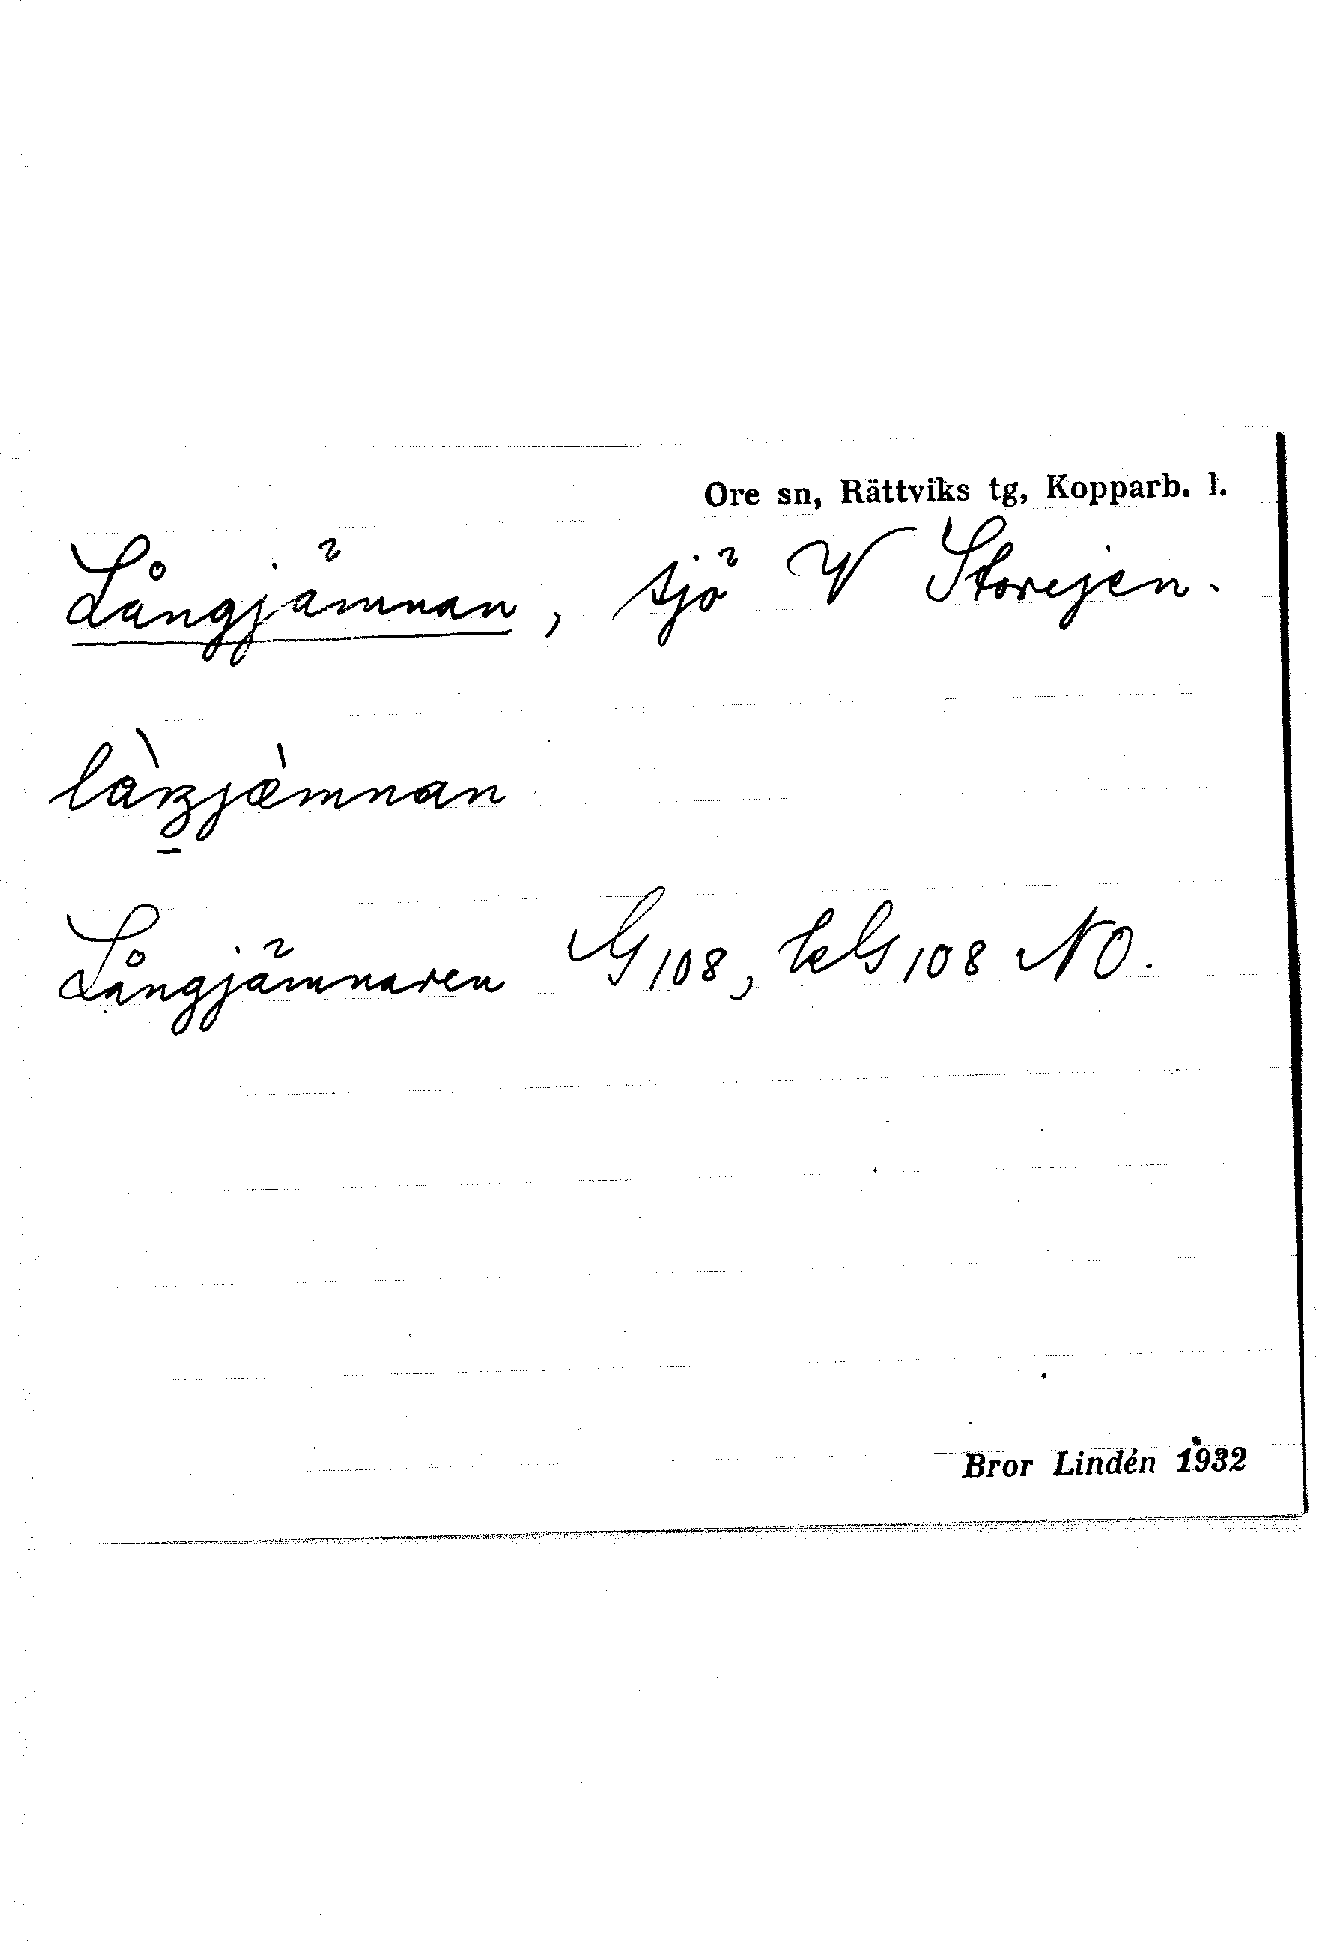 Ore sn, Rättviks tg, Kopparb. l.
Långjämnan, sjö V Storejen.
Långjämnaren G 108, kG 108 NO.
Bror Lindén 1932